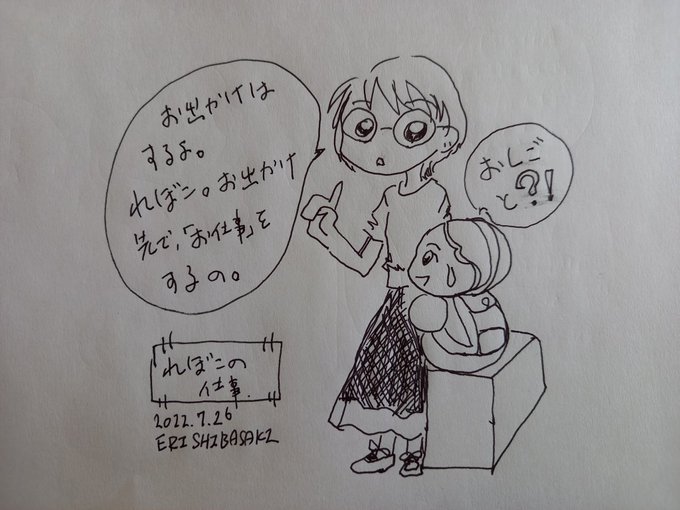 お出かけは
するよ。
れぼこ。お出かけ
先で、「お仕事」を
するの。
おしご
と?!
れぼこの
仕事.
2022.7.26
ERI SHIBASAKI